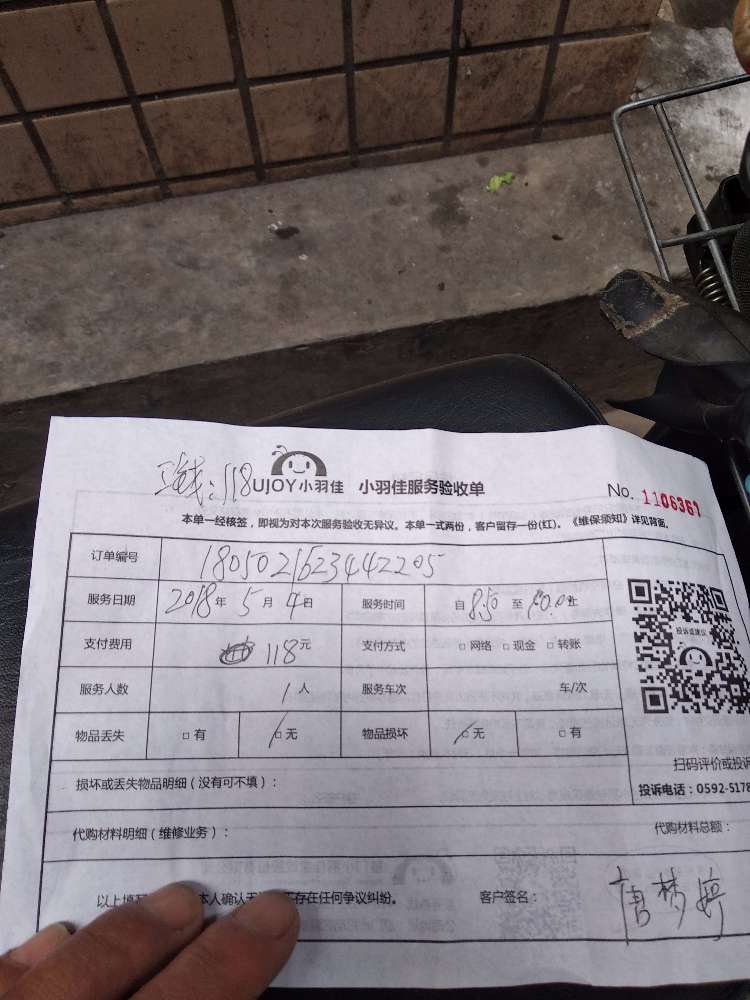 118
UJOY小羽佳 小羽佳服务验收单 No. 1106361
本单一经核签，即视为对本次服务验收无异议。本单一式两份，客户留存一份(红)。《维保须知》详见背面。
订单编号 1805021623442205
服务日期 2018年 5月 4日 服务时间 自 8:50 至 10:0 止
支付费用 118元 支付方式 □网络 □现金 □转账
投诉或建议
服务人数 1人 服务车次 车/次
物品丢失 □有 □无 物品损坏 □无 □有
扫码评价或投诉
损坏或丢失物品明细（没有可不填）：
投诉电话：0592-5178
代购材料明细（维修业务）： 代购材料总额：
以上填写 本人确认无 存在任何争议纠纷。 客户签名： 唐梦婷